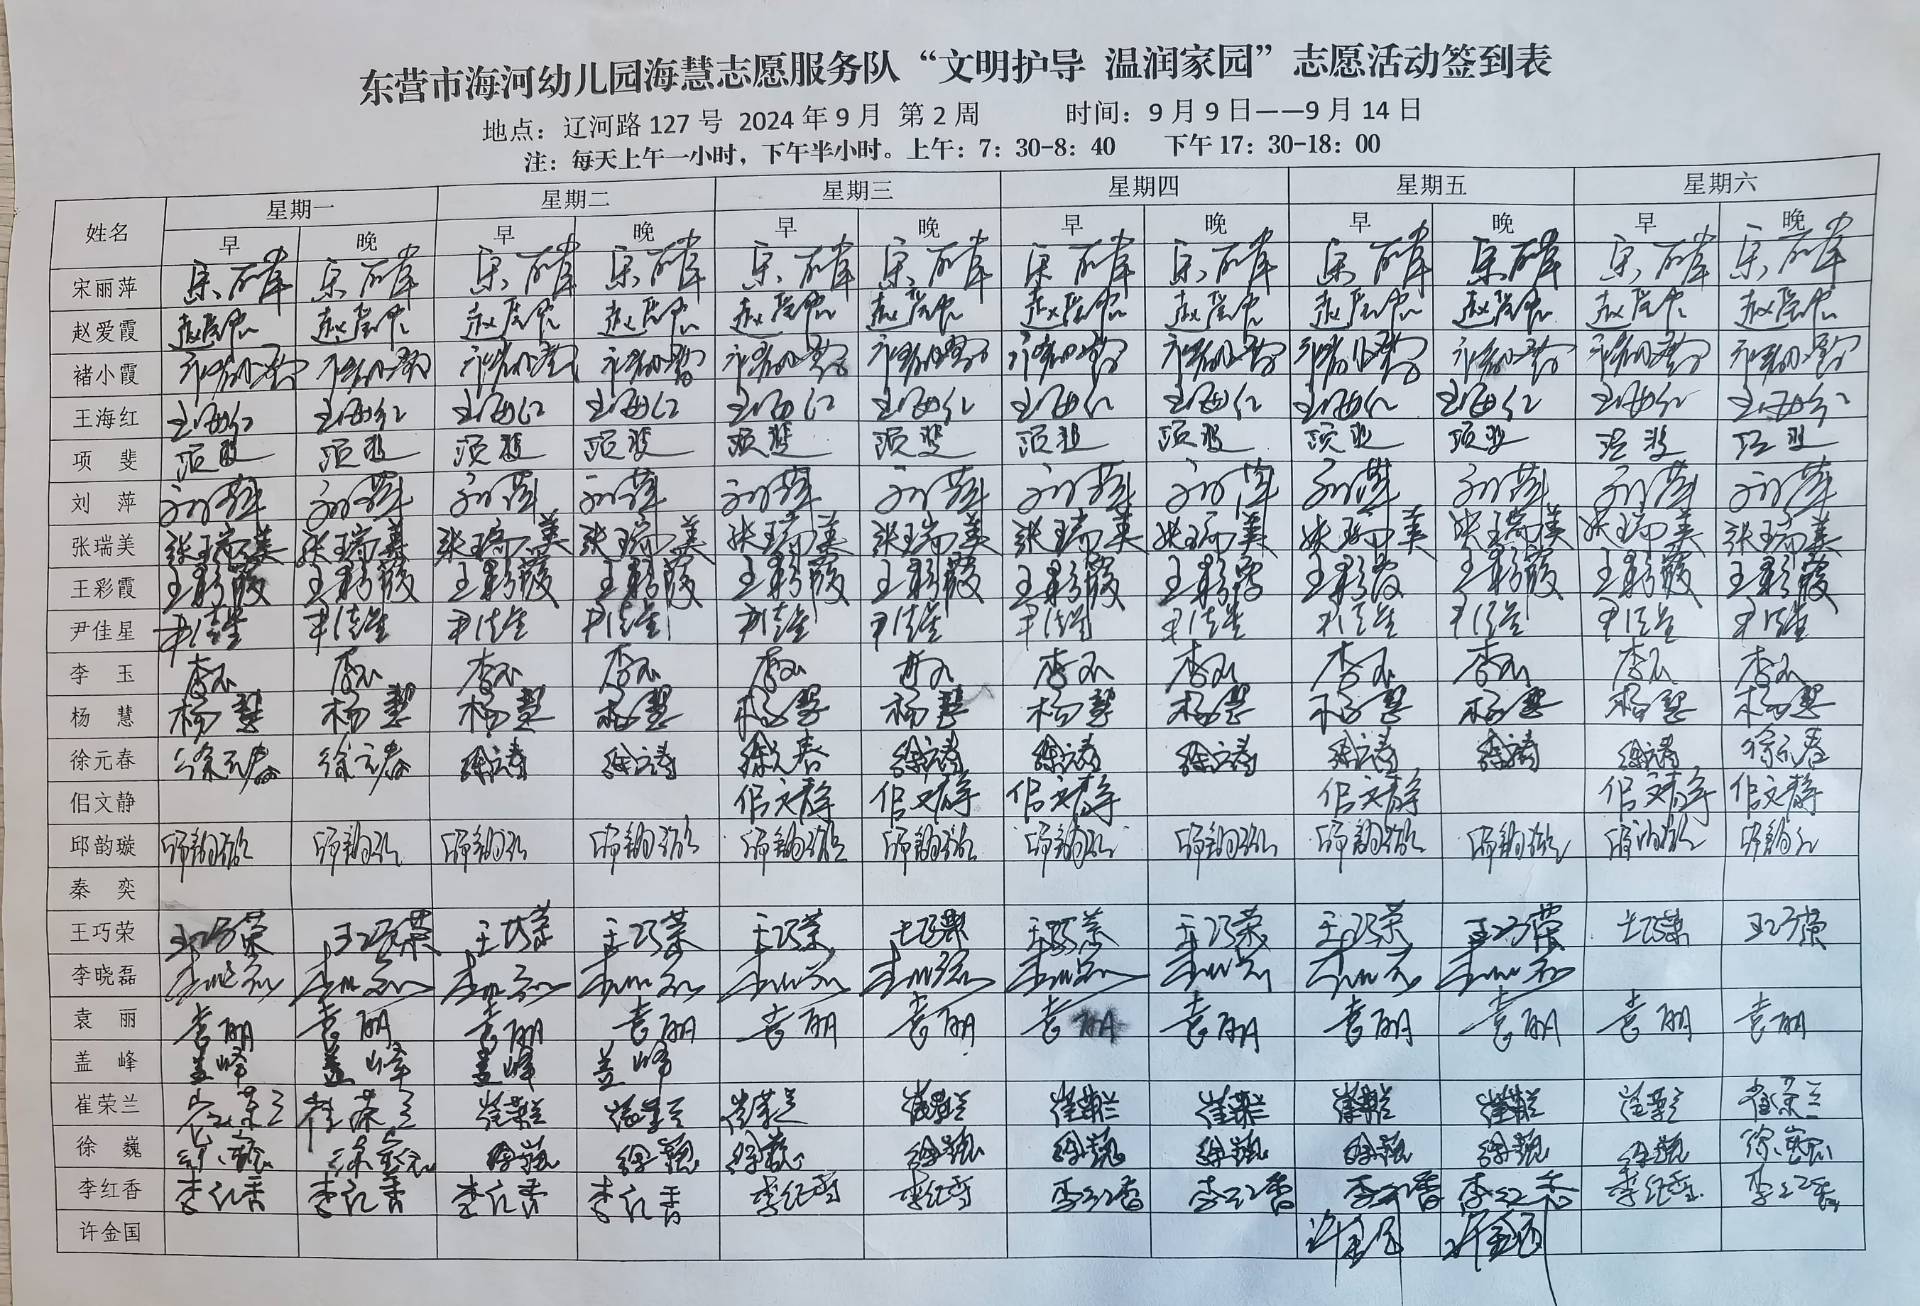 东营市海河幼儿园海慧志愿服务队“文明护导 温润家园”志愿活动签到表
地点：辽河路 127 号 2024 年 9 月 第 2 周 时间：9 月 9 日——9 月 14 日
注：每天上午一小时，下午半小时。上午：7：30-8：40 下午 17：30-18：00
姓名 星期一 星期二 星期三 星期四 星期五 星期六
早 晚 早 晚 早 晚 早 晚 早 晚 早 晚
宋丽萍 宋丽萍 宋丽萍 宋丽萍 宋丽萍 宋丽萍 宋丽萍 宋丽萍 宋丽萍 宋丽萍 宋丽萍 宋丽萍 宋丽萍
赵爱霞 赵爱霞 赵爱霞 赵爱霞 赵爱霞 赵爱霞 赵爱霞 赵爱霞 赵爱霞 赵爱霞 赵爱霞 赵爱霞 赵爱霞
褚小霞 褚小霞 褚小霞 褚小霞 褚小霞 褚小霞 褚小霞 褚小霞 褚小霞 褚小霞 褚小霞 褚小霞 褚小霞
王海红 王海红 王海红 王海红 王海红 王海红 王海红 王海红 王海红 王海红 王海红 王海红 王海红
项 斐 项斐 项斐 项斐 项斐 项斐 项斐 项斐 项斐 项斐 项斐 项斐 项斐
刘 萍 刘萍 刘萍 刘萍 刘萍 刘萍 刘萍 刘萍 刘萍 刘萍 刘萍 刘萍 刘萍
张瑞美 张瑞美 张瑞美 张瑞美 张瑞美 张瑞美 张瑞美 张瑞美 张瑞美 张瑞美 张瑞美 张瑞美 张瑞美
王彩霞 王彩霞 王彩霞 王彩霞 王彩霞 王彩霞 王彩霞 王彩霞 王彩霞 王彩霞 王彩霞 王彩霞 王彩霞
尹佳星 尹佳星 尹佳星 尹佳星 尹佳星 尹佳星 尹佳星 尹佳星 尹佳星 尹佳星 尹佳星 尹佳星 尹佳星
李 玉 李玉 李玉 李玉 李玉 李玉 李玉 李玉 李玉 李玉 李玉 李玉 李玉
杨 慧 杨慧 杨慧 杨慧 杨慧 杨慧 杨慧 杨慧 杨慧 杨慧 杨慧 杨慧 杨慧
徐元春 徐元春 徐元春 徐元春 徐元春 徐元春 徐元春 徐元春 徐元春 徐元春 徐元春 徐元春 徐元春
佀文静 佀文静 佀文静 佀文静 佀文静 佀文静 佀文静
邱韵璇 邱韵璇 邱韵璇 邱韵璇 邱韵璇 邱韵璇 邱韵璇 邱韵璇 邱韵璇 邱韵璇 邱韵璇 邱韵璇 邱韵璇
秦 奕
王巧荣 王巧荣 王巧荣 王巧荣 王巧荣 王巧荣 王巧荣 王巧荣 王巧荣 王巧荣 王巧荣 王巧荣 王巧荣
李晓磊 李晓磊 李晓磊 李晓磊 李晓磊 李晓磊 李晓磊 李晓磊 李晓磊 李晓磊 李晓磊
袁 丽 袁丽 袁丽 袁丽 袁丽 袁丽 袁丽 袁丽 袁丽 袁丽 袁丽 袁丽 袁丽
盖 峰 盖峰 盖峰 盖峰 盖峰
崔荣兰 崔荣兰 崔荣兰 崔荣兰 崔荣兰 崔荣兰 崔荣兰 崔荣兰 崔荣兰 崔荣兰 崔荣兰 崔荣兰 崔荣兰
徐 巍 徐巍 徐巍 徐巍 徐巍 徐巍 徐巍 徐巍 徐巍 徐巍 徐巍 徐巍 徐巍
李红香 李红香 李红香 李红香 李红香 李红香 李红香 李红香 李红香 李红香 李红香 李红香 李红香
许金国 许金国 许金国